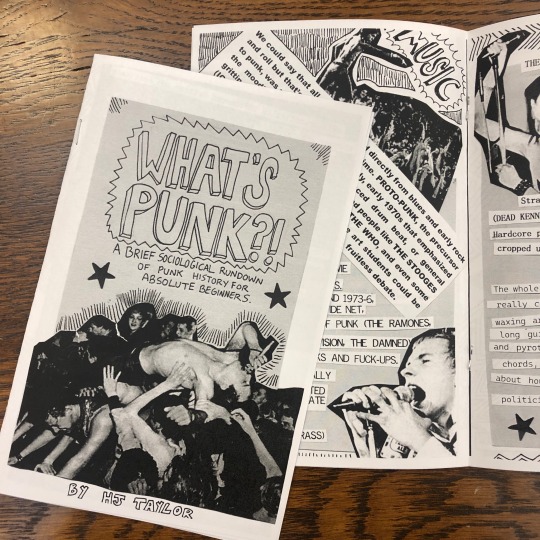 WHAT'S
PUNK?!
A BRIEF SOCIOLOGICAL RUNDOWN
OF PUNK HISTORY FOR
ABSOLUTE BEGINNERS.
BY HJ TAYLOR
We could say that all
and roll but that's
to punk, was
the mood
gritti
MUSIC
directly from blues and early rock
me. PROTO-PUNK, the precursor
ly, early 1970s that emphasizes
ced drum beat, or general
d people like THE STOOGES
THE WHO, and even some
e art students could be
fruitless debate.
ME
S.
ND 1973-6.
IDE NET,
F PUNK (THE RAMONES,
ISION, THE DAMNED)
KS AND FUCK-UPS.
ALLY
TED
ATE
RASS)
THE
Stra
(DEAD KENN
Hardcore p
cropped u
The whole
really c
waxing an
long gui
and pyrot
chords,
about how
politici